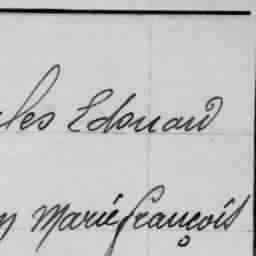 les Edouard
Marie françois